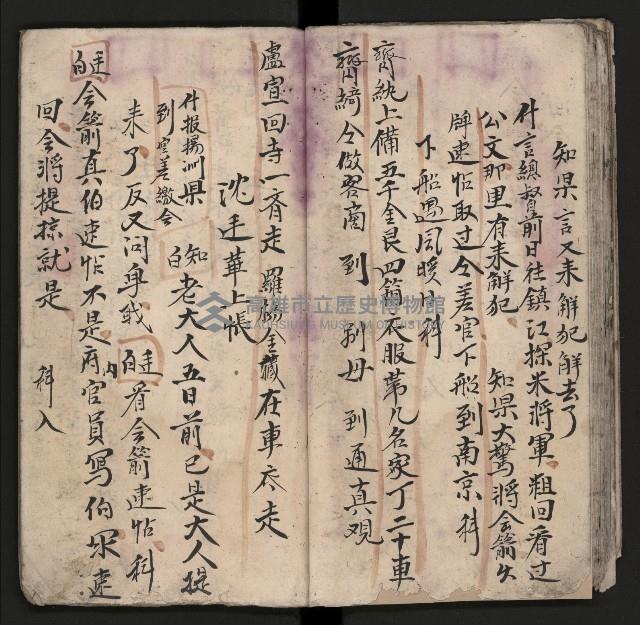 知県言又来解犯解去了
什言總督前日往鎮江探米將軍粗回看过
公文那里有来解犯 知県大驚將令箭火
牌速帖取过令差官下船到南京 科
下船遇風暖 科
齊紈上備五千金艮四箱衣服茅九名家丁二十車
齊綺令做客商 到 別母 到通真观
盧宣回寺一齊走 羅 金藏在車底走
沈廷華上帳
什报揚州県 知白 老大人五日前已是大人提
到 差繳令
来了反又问身或 廷白 看令箭速帖科
廷白 令箭真伯速帖不是府内官員寫伯 速
回令將提掠就是 科入
高雄市立歷史博物館
KAOHSIUNG MUSEUM OF HISTORY